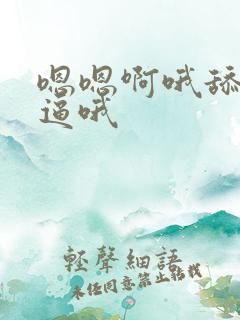 嗯嗯啊哦舔
逼哦
輕聲細語
未经同意禁止转载